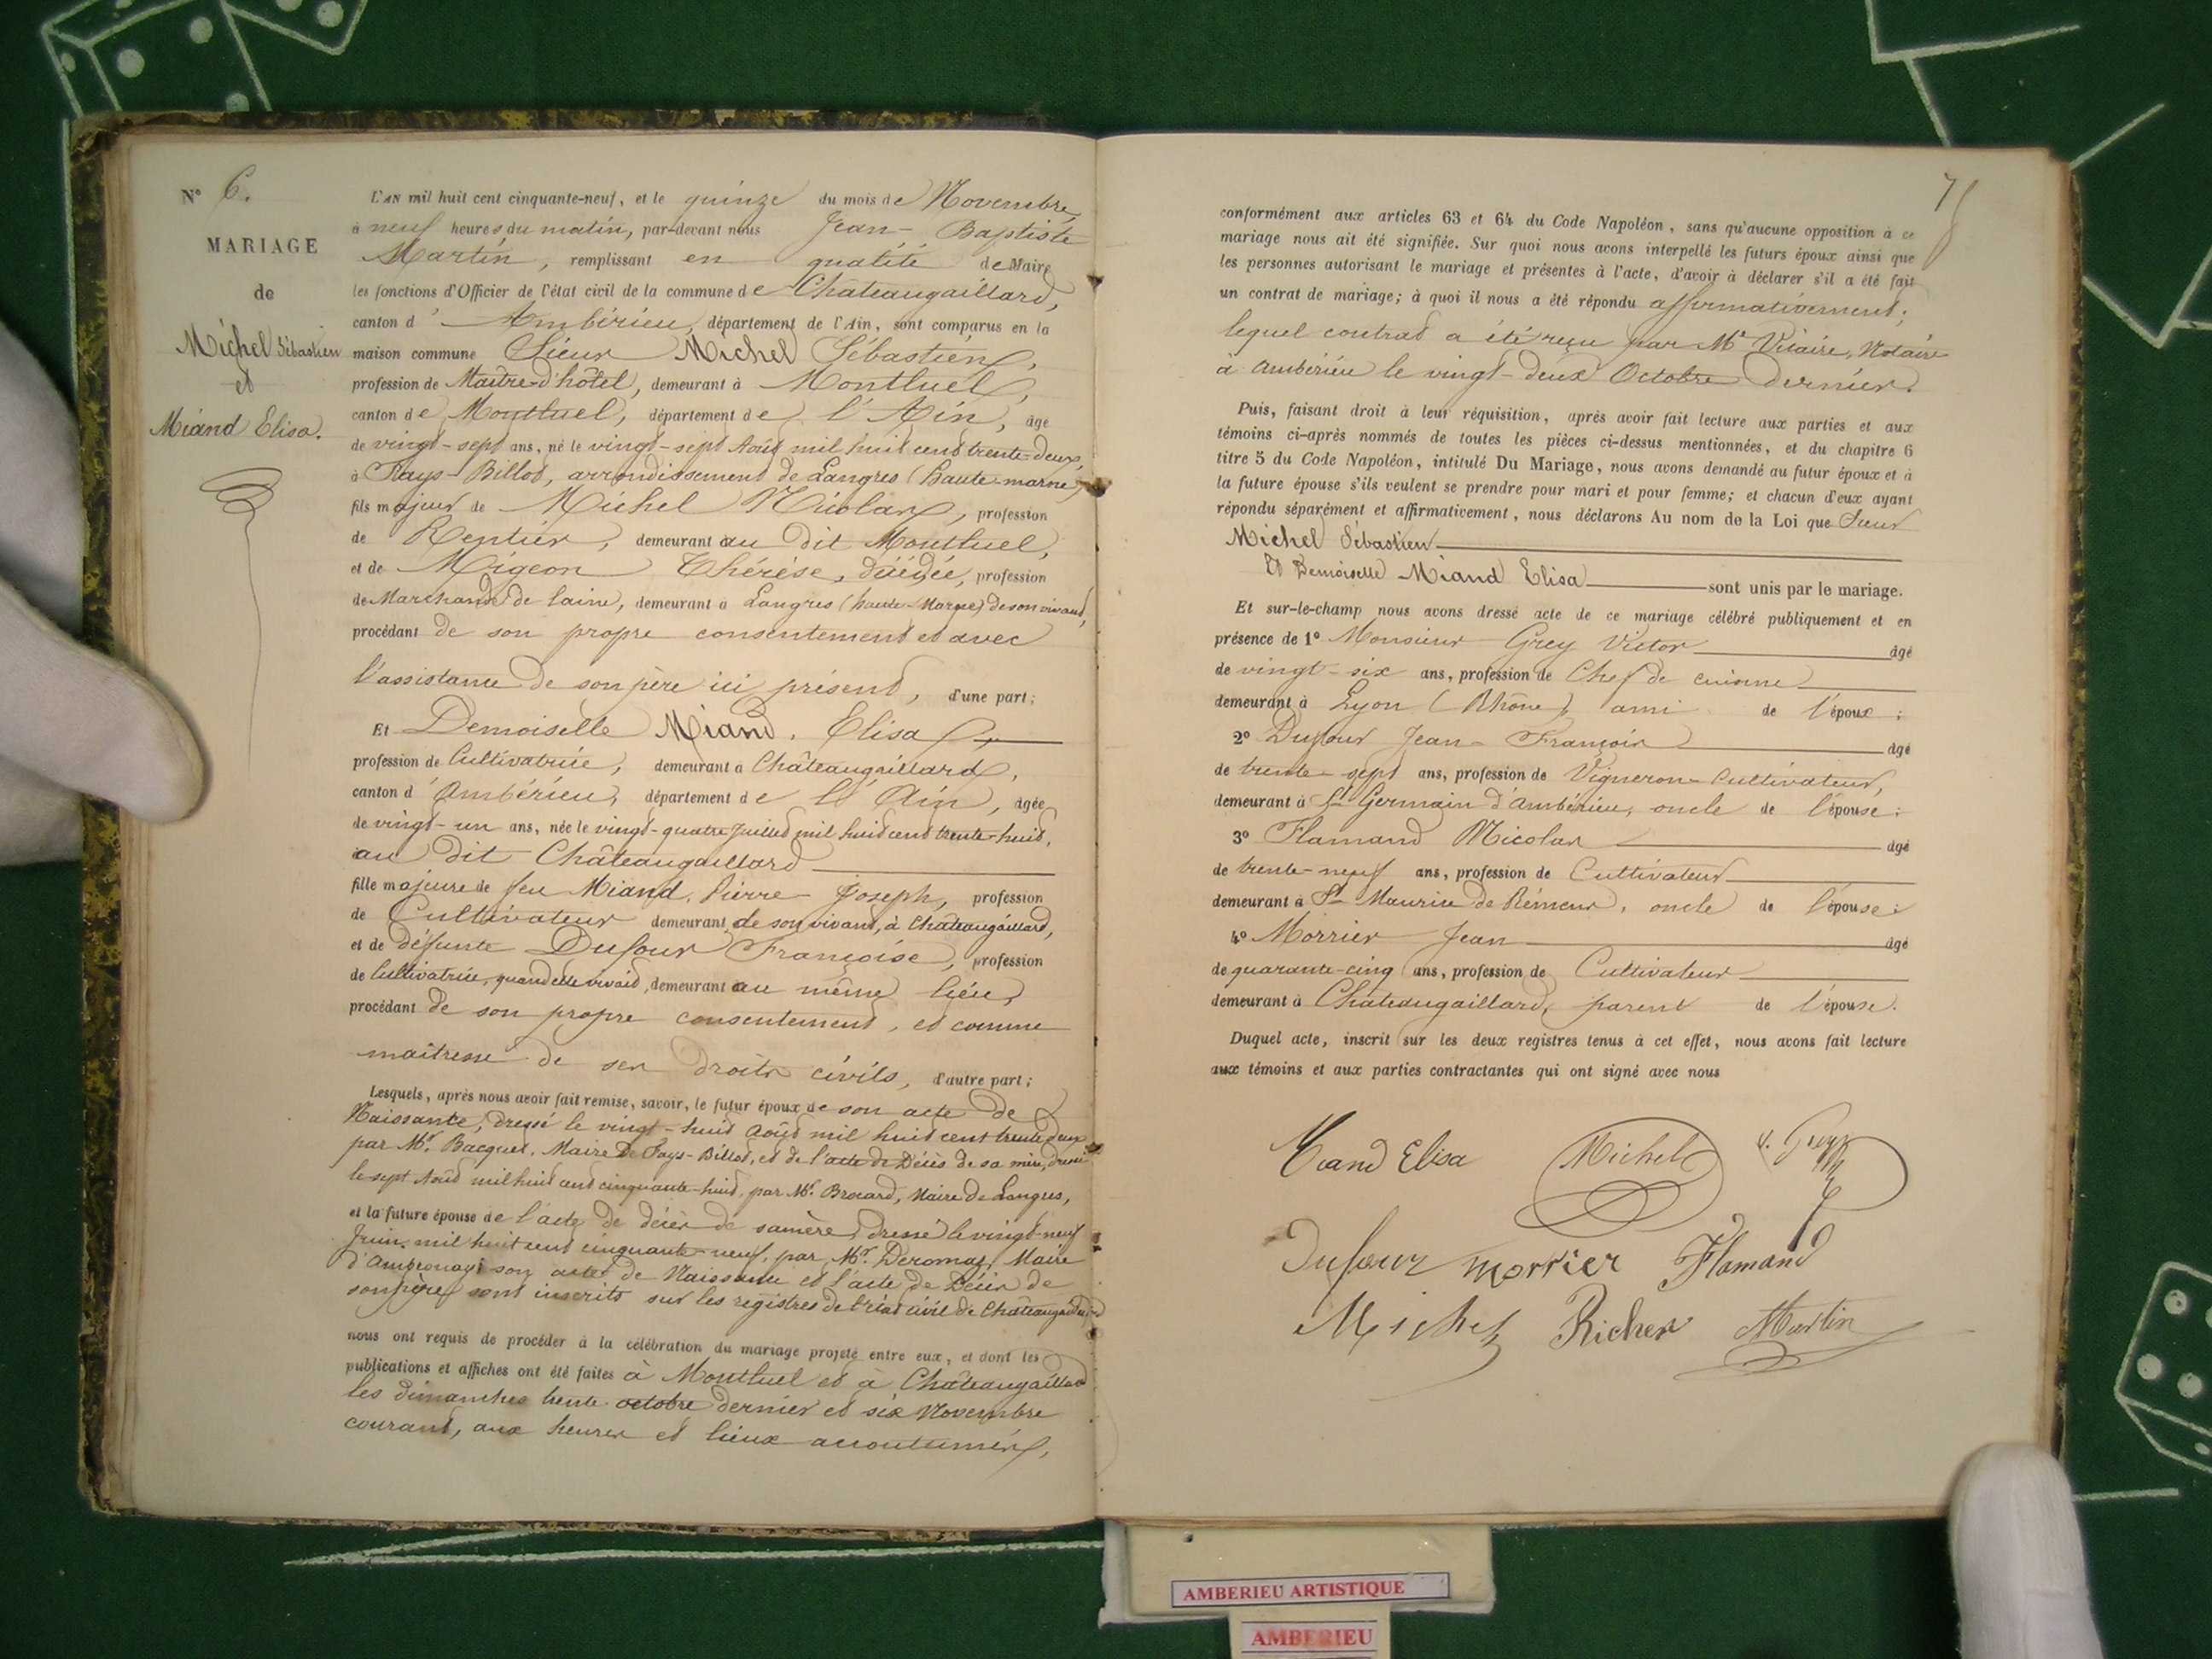 N° 6.
MARIAGE
de
Michel Sébastien
et
Miand Elisa.
L'AN mil huit cent cinquante-neuf, et le quinze du mois de Novembre,
à neuf heures du matin, par-devant nous Jean-Baptiste
Martin, remplissant en qualité de Maire
les fonctions d'Officier de l'état civil de la commune de Châteaugaillard,
canton d'Ambérieu, département de l'Ain, sont comparus en la
maison commune Sieur Michel Sébastien,
profession de Maître-d'hôtel, demeurant à Montluel,
canton de Montluel, département de l'Ain, âgé
de vingt-sept ans, né le vingt-sept Août mil huit cent trente-deux,
à Fays-Billot, arrondissement de Langres (haute-marne),
fils majeur de Michel Nicolas, profession
de Rentier, demeurant au dit Montluel,
et de Migeon Thérèse, décédée, profession
de Marchande de laine, demeurant à Langres (haute-Marne) de son vivant,
procédant de son propre consentement et avec
l'assistance de son père ici présent, d'une part;
Et Demoiselle Miand, Elisa
profession de Cultivatrice, demeurant à Châteaugaillard,
canton d'Ambérieu, département de l'Ain, âgée
de vingt-un ans, née le vingt-quatre Juillet mil huit cent trente-huit,
au dit Châteaugaillard
fille majeure de feu Miand, Pierre-Joseph, profession
de Cultivateur demeurant de son vivant, à Châteaugaillard,
et de défunte Dufour Françoise, profession
de Cultivatrice, quand elle vivait, demeurant au même lieu,
procédant de son propre consentement, et comme
maîtresse de ses droits civils, d'autre part;
Lesquels, après nous avoir fait remise, savoir, le futur époux de son acte de
Naissance, dressé le vingt-huit Août mil huit cent trente deux
par Mr. Bacquet, Maire de Fays-Billot, et de l'acte de Décès de sa mère, dressé
le sept Août mil huit cent cinquante-huit, par Mr. Brocard, Maire de Langres,
et la future épouse de l'acte de décès de sa mère, dressé le vingt-neuf
Juin mil huit cent cinquante-neuf, par Mr. Deromas, Maire
d'Ambronay; son acte de Naissance et l'acte de Décès de
son père sont inscrits sur les registres de l'état civil de Châteaugaillard
nous ont requis de procéder à la célébration du mariage projeté entre eux, et dont les
publications et affiches ont été faites à Montluel et à Châteaugaillard
les dimanches trente octobre dernier et six Novembre
courant, aux heures et lieux accoutumés,
7
conformément aux articles 63 et 64 du Code Napoléon, sans qu'aucune opposition à ce
mariage nous ait été signifiée. Sur quoi nous avons interpellé les futurs époux ainsi que
les personnes autorisant le mariage et présentes à l'acte, d'avoir à déclarer s'il a été fait
un contrat de mariage; à quoi il nous a été répondu affirmativement;
lequel contrat a été reçu par Me Vicaire, Notaire
à Ambérieu le vingt-deux Octobre dernier.
Puis, faisant droit à leur réquisition, après avoir fait lecture aux parties et aux
témoins ci-après nommés de toutes les pièces ci-dessus mentionnées, et du chapitre 6
titre 5 du Code Napoléon, intitulé Du Mariage, nous avons demandé au futur époux et à
la future épouse s'ils veulent se prendre pour mari et pour femme; et chacun d'eux ayant
répondu séparément et affirmativement, nous déclarons Au nom de la Loi que Sieur
Michel Sébastien
Et Demoiselle Miand Elisa sont unis par le mariage.
Et sur-le-champ nous avons dressé acte de ce mariage célébré publiquement et en
présence de 1° Monsieur Grey Victor âgé
de vingt-six ans, profession de Chef de cuisine
demeurant à Lyon (Rhône), ami de l'époux;
2° Dufour Jean-François âgé
de trente-sept ans, profession de Vigneron-Cultivateur,
demeurant à St Germain d'Ambérieu, oncle de l'épouse;
3° Flamand Nicolas âgé
de trente-neuf ans, profession de Cultivateur
demeurant à St Maurice de Rémens, oncle de l'épouse;
4° Morrier Jean âgé
de quarante-cinq ans, profession de Cultivateur
demeurant à Châteaugaillard, parent de l'épouse.
Duquel acte, inscrit sur les deux registres tenus à cet effet, nous avons fait lecture
aux témoins et aux parties contractantes qui ont signé avec nous
Miand Elisa Michel V. Grey
Dufour morrier Flamand
Michel Richer Martin
AMBERIEU ARTISTIQUE
AMBERIEU